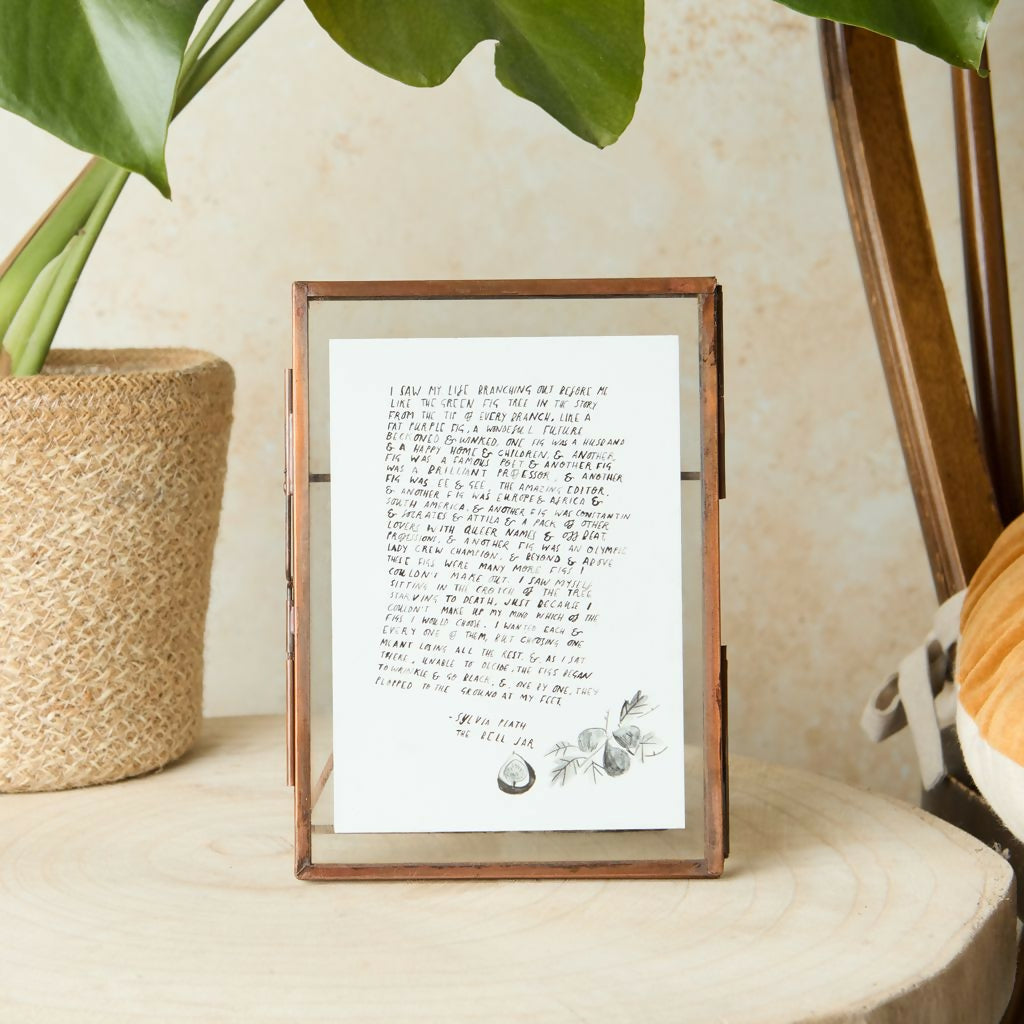 I SAW MY LIFE BRANCHING OUT BEFORE ME
LIKE THE GREEN FIG TREE IN THE STORY
FROM THE TIP OF EVERY BRANCH, LIKE A
FAT PURPLE FIG, A WONDEFUL FUTURE
BECKONED & WINKED. ONE FIG WAS A HUSBAND
& A HAPPY HOME & CHILDREN, & ANOTHER
FIG WAS A FAMOUS POET & ANOTHER FIG
WAS A BRILLIANT PROFESSOR, & ANOTHER
FIG WAS EE & GEE, THE AMAZING EDITOR,
& ANOTHER FIG WAS EUROPE & AFRICA &
SOUTH AMERICA, & ANOTHER FIG WAS CONSTANTIN
& SOCRATES & ATTILA & A PACK OF OTHER
LOVERS WITH QUEER NAMES & OFF BEAT
PROFESSIONS, & ANOTHER FIG WAS AN OLYMPIC
LADY CREW CHAMPION, & BEYOND & ABOVE
THESE FIGS WERE MANY MORE FIGS I
COULDN'T MAKE OUT. I SAW MYSELF
SITTING IN THE CROTCH OF THE TREE
STARVING TO DEATH, JUST BECAUSE I
COULDN'T MAKE UP MY MIND WHICH OF THE
FIGS I WOULD CHOOSE. I WANTED EACH &
EVERY ONE OF THEM, BUT CHOOSING ONE
MEANT LOSING ALL THE REST, & AS I SAT
THERE, UNABLE TO DECIDE, THE FIGS BEGAN
TO WRINKLE & GO BLACK, & ONE BY ONE, THEY
PLOPPED TO THE GROUND AT MY FEET
-SYLVIA PLATH
THE BELL JAR